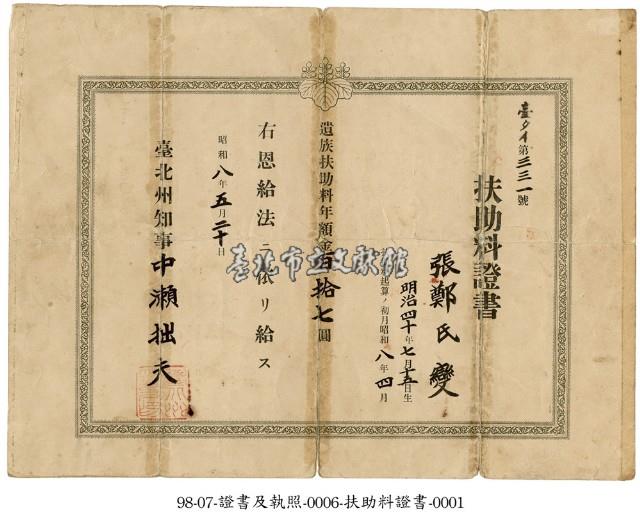 臺タイ第三三一號
扶助料證書
張鄭氏變
明治四十年七月十五日生
起算ノ初月昭和八年四月
遺族扶助料年額金百拾七圓
右恩給法ニ依リ給ス
昭和八年五月二十日
臺北州知事中瀨拙夫
臺北市立文獻館
98-07-證書及執照-0006-扶助料證書-0001